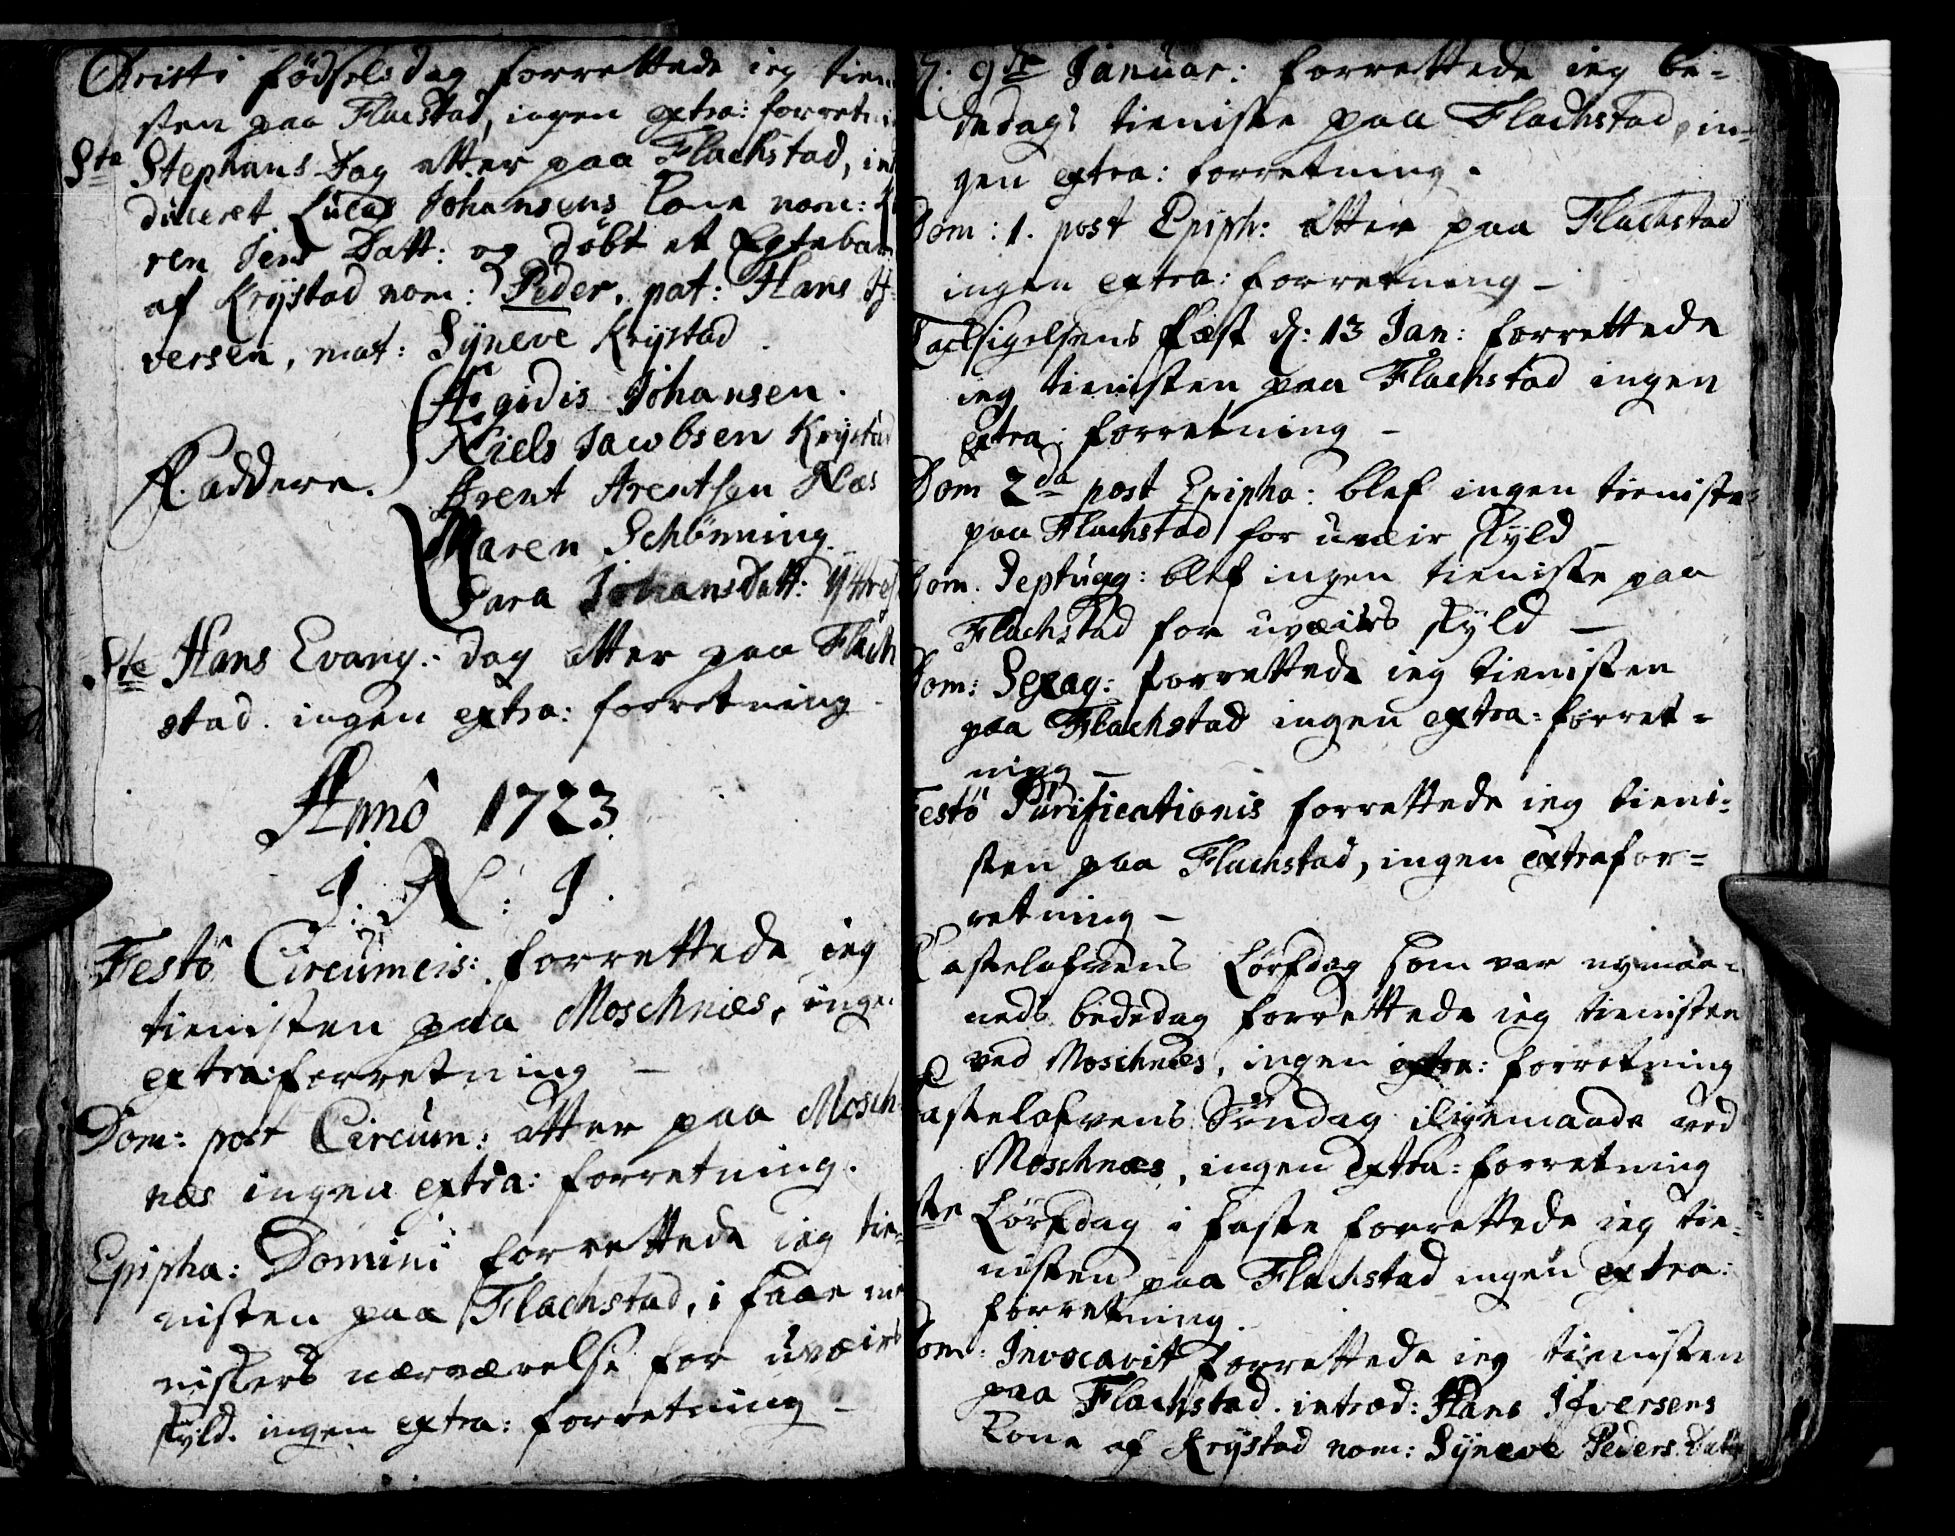 Christi fødselsdag forrettede ieg tien
sten paa Flachstad, ingen extra: forretni
Ste Stephans Dag atter paa Flachstad, in
duceret Lucas Johansens Kone nom: K
ren Jens Datt: og døbt et Egtebar
af Krystad nom: Peder. pat: Hans If-
versen, mat: Syneve Krystad
Ægidis Johansen.
Niels Jacobsen Krystad
Faddere. Arent Arentsen Næs
Maren Schønning
Sara JohansDatt: Yttres
Ste Hans Evang: dag atter paa Flach
stad. ingen extra: forretning.
Anno 1723.
J. N: J.
Festo Circumcis: forrettede ieg
tienisten paa Moschnæs, inge
extra: forretning —
Dom: post Circum: atter paa Mosch-
næs ingen extra: forretning.
Epipha: Domini forrettede ieg tie-
nisten paa Flachstad, i faae me
niskers nærværelse for uveirs
skyld. ingen extra: forretning —
d. 9de Januar: forrettede ieg be-
dedags tieniste paa Flachstad, in-
gen extra: forretning.
Dom: 1. post Epiph: atter paa Flachstad
ingen extra: forretning —
Tacksigelsens fæst d: 13 Jan: forrettede
ieg tienisten paa Flachstad ingen
extra: forretning —
Dom 2da post Epipha: blef ingen tieniste
paa Flachstad for uveir skyld —
Dom. Septuag: blef ingen tieniste paa
Flachstad for uveirs skyld —
Dom: Sexag: forrettede ieg tienisten
paa Flachstad ingen extra: forret-
ning —
Festo Purificationis forrettede ieg tieni-
sten paa Flachstad, ingen extrafor-
retning —
Fastelafvens Lørsdag som var nymaa-
neds bededag forrettede ieg tienisten
ved Moschnæs, ingen extra: forretning
Fastelafvens Søndag iligemaade ved
Moschnæs, ingen extra: forretning
ste Lørsdag i faste forrettede ieg tie-
nisten paa Flachstad ingen extra:
forretning.
Dom: Invocavit forrettede ieg tienisten
paa Flachstad. introd: Hans Ifversens
Kone af Krystad nom: Syneve Peders Datt